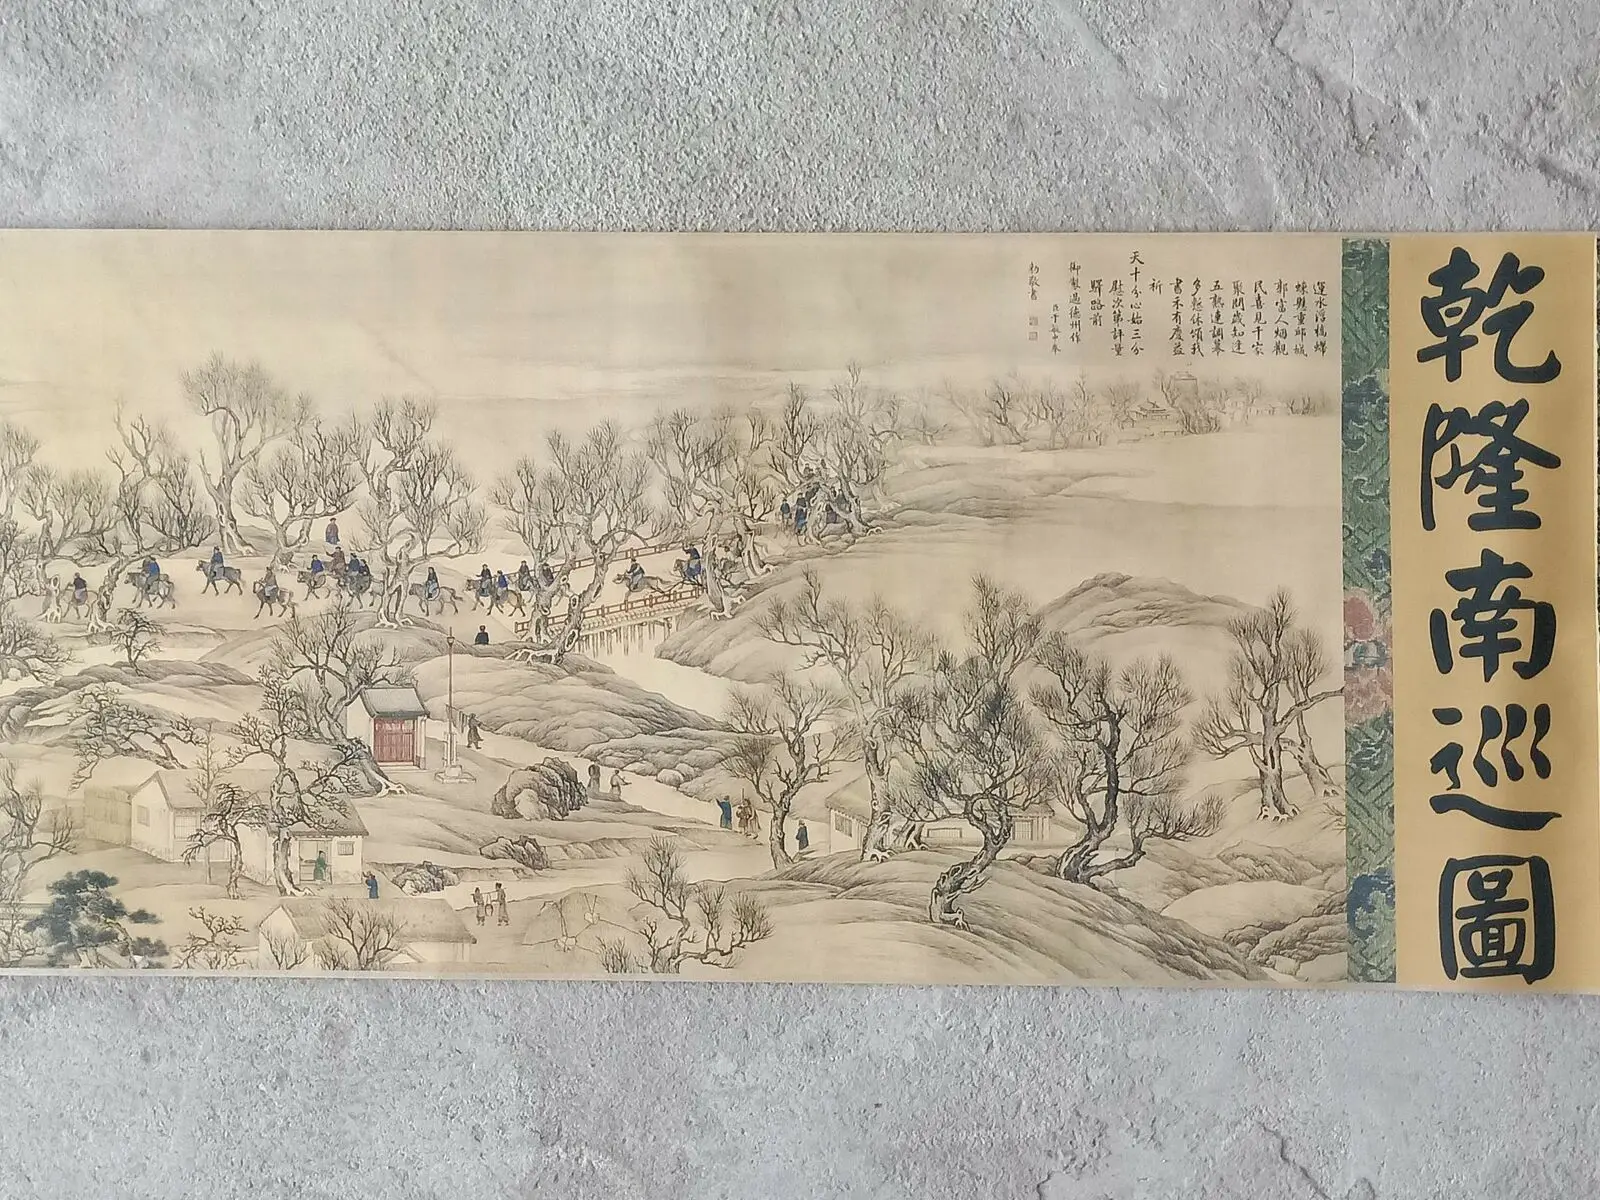 乾隆南巡圖
運水浮橋蠂
竦懸重郎城
郭富人烟觀
民喜見千家
聚問歲知逢
五熟連調幕
多慙休頌我
書禾有慶益
祈
天十分心始三分
慰次第評量
驛路前
御製過德州作
臣于敏中奉
勅敬書